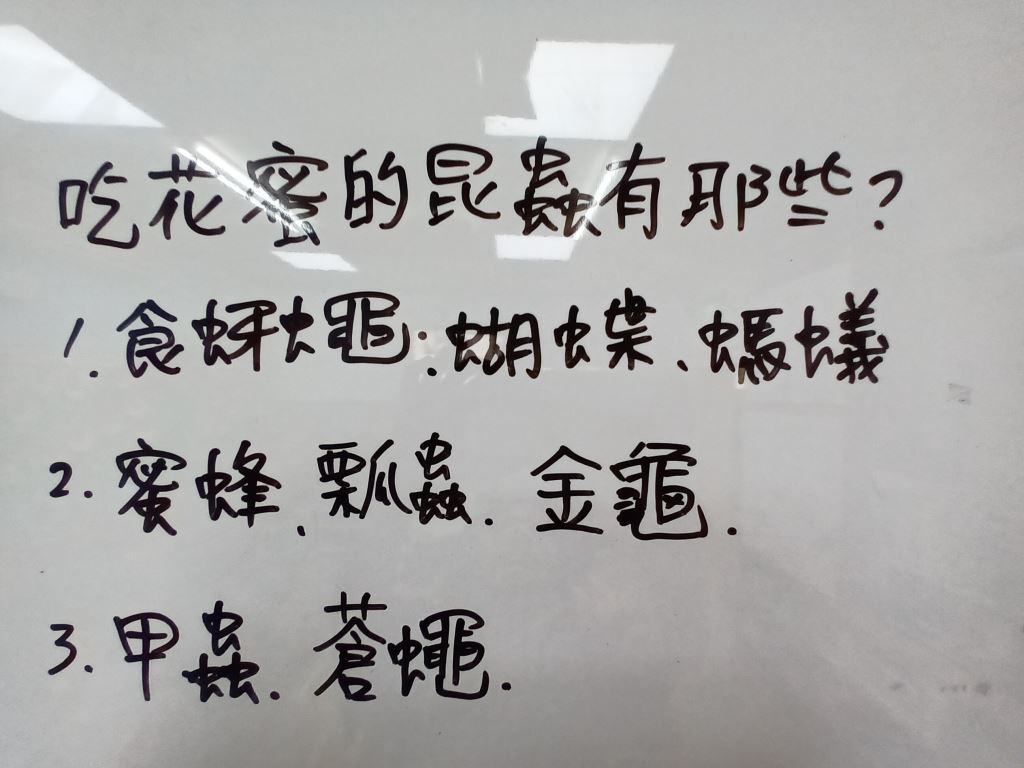 吃花蜜的昆蟲有那些?
1. 食蚜蠅.蝴蝶、螞蟻
2. 蜜蜂、瓢蟲. 金龜.
3. 甲蟲. 蒼蠅.